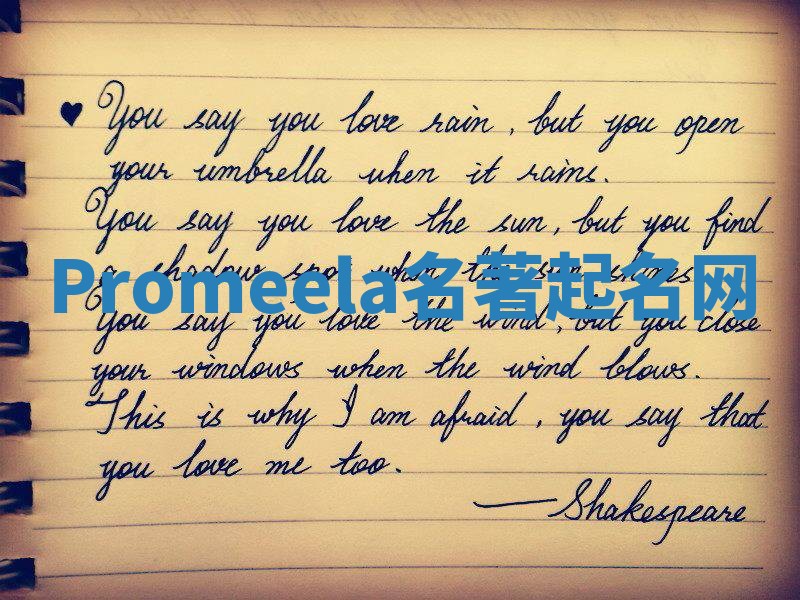 ♥ You say you love rain, but you open
your umbrella when it rains.
You say you love the sun, but you find
a shadow spot when the sun shines
Promeela名著起名网
You say you love the wind, but you close
your windows when the wind blows.
This is why I am afraid, you say that
you love me too.
— Shakespeare